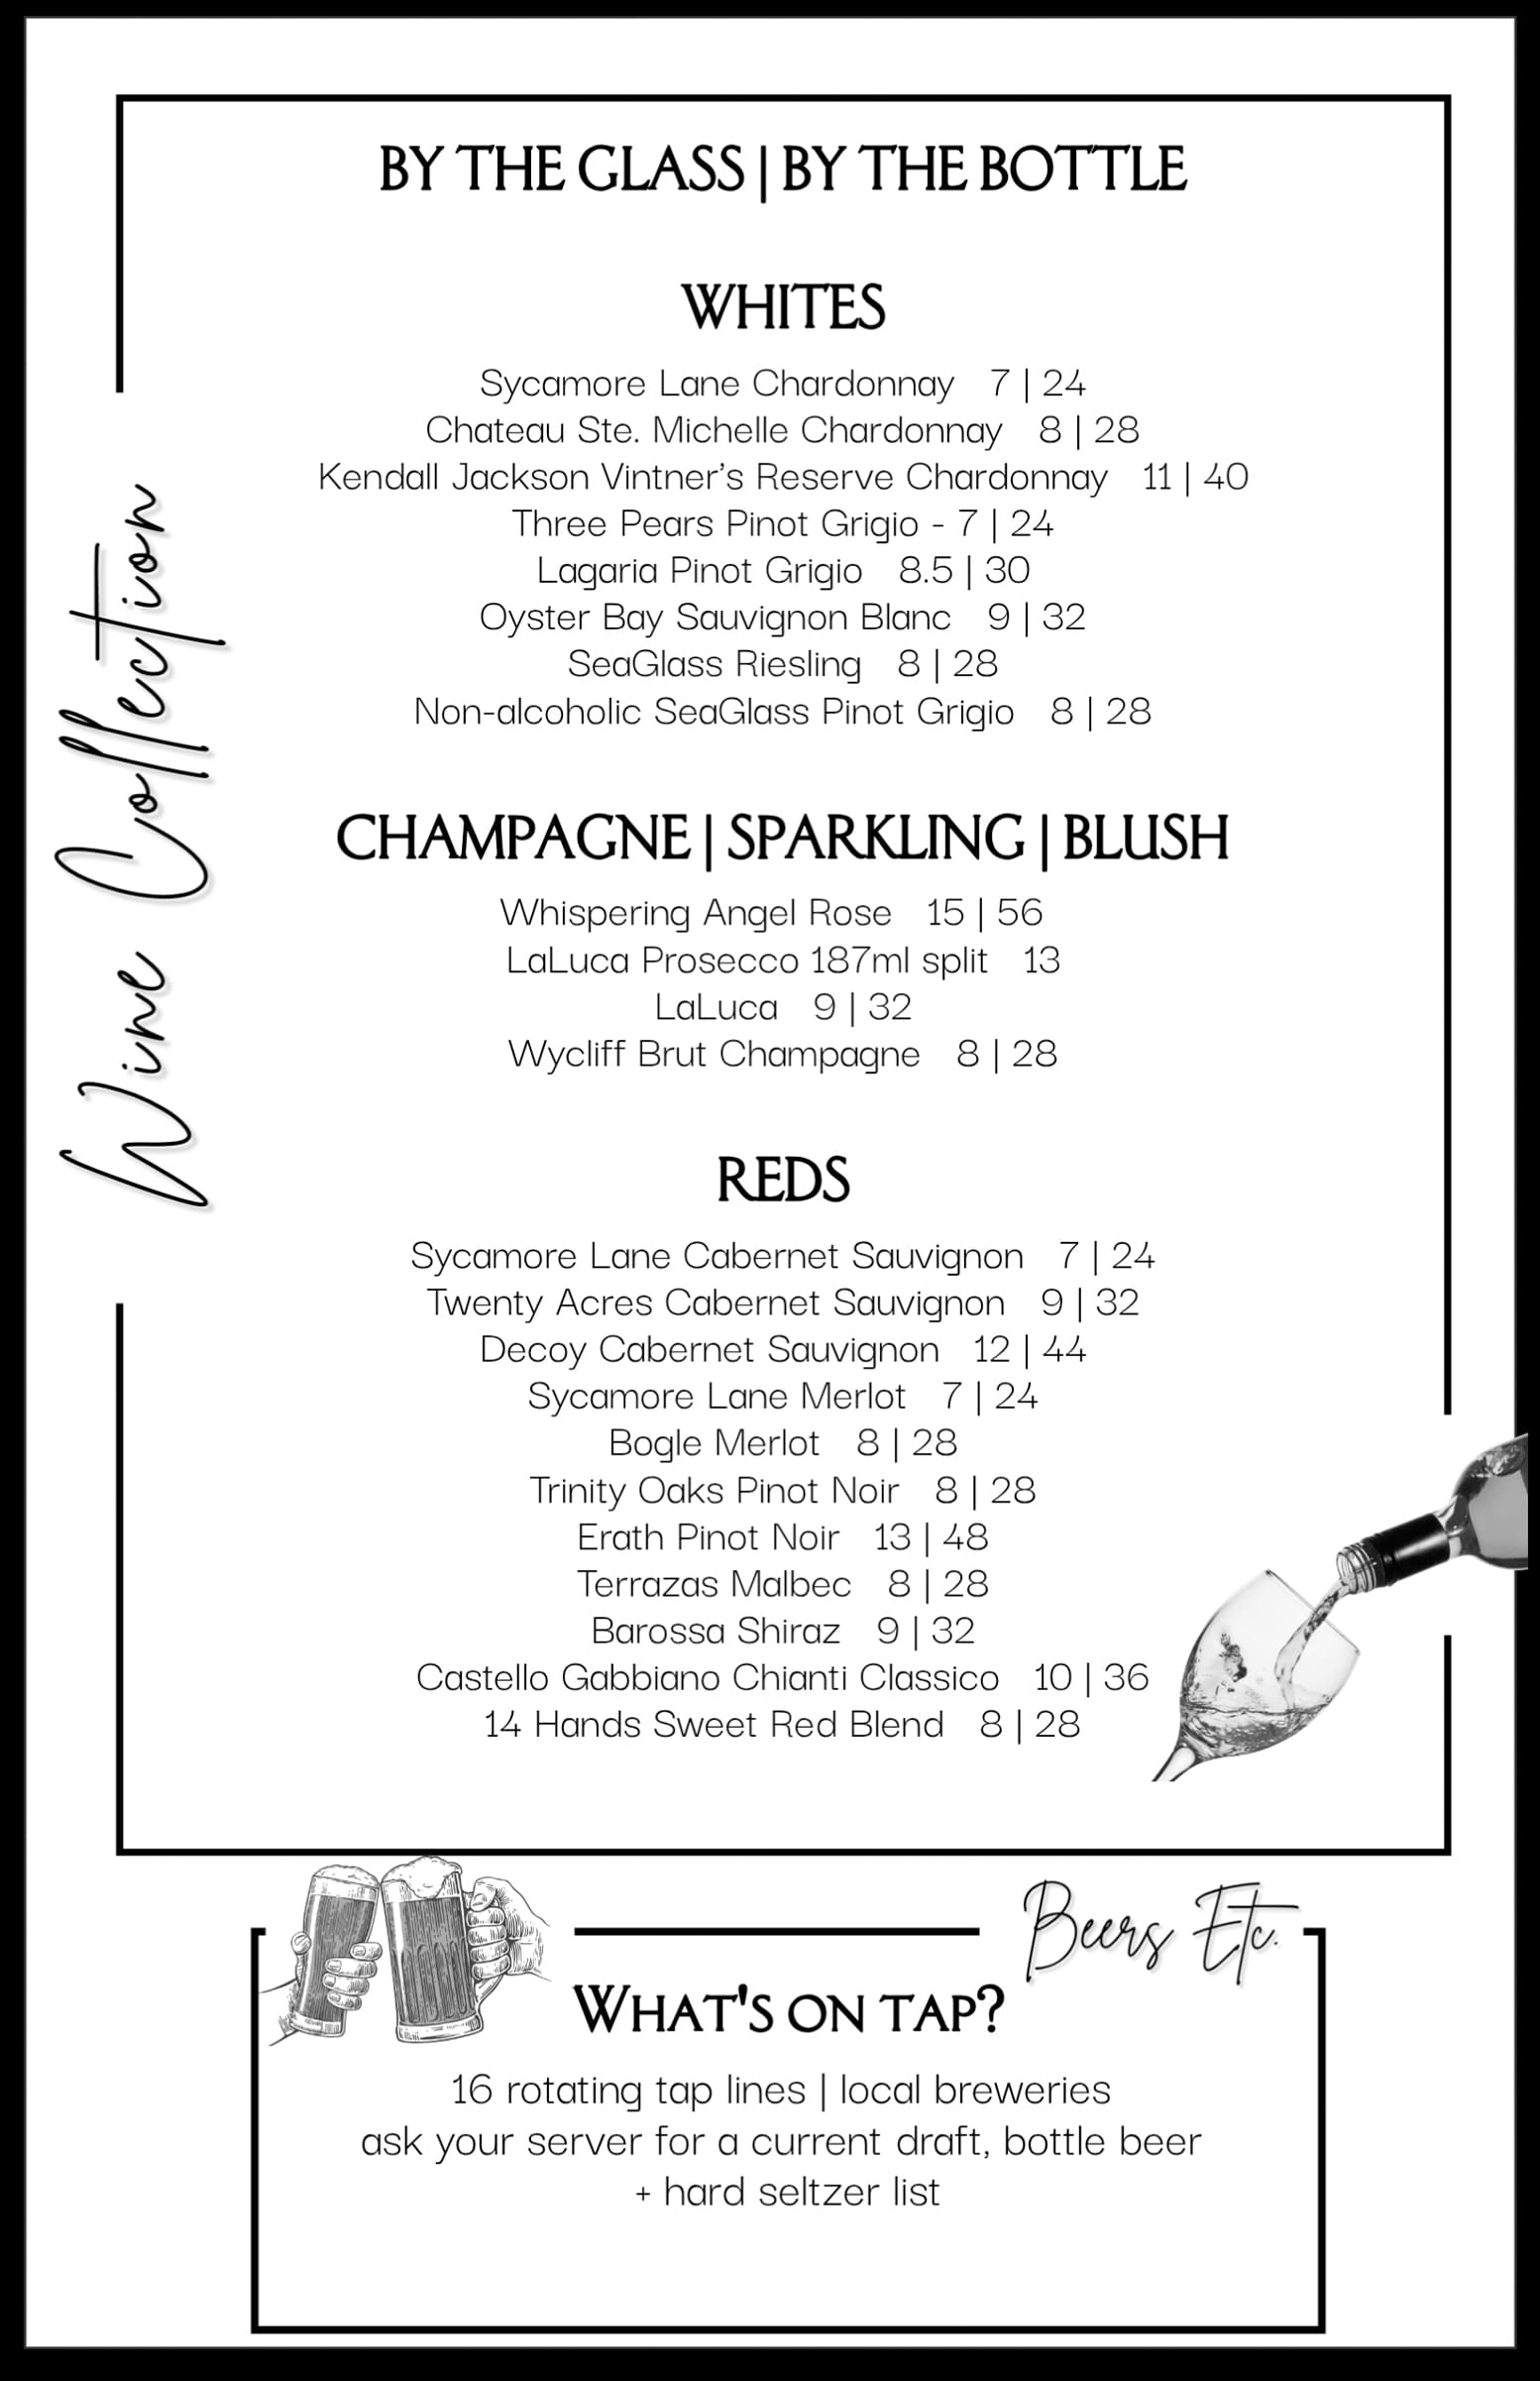 BY THE GLASS | BY THE BOTTLE
WHITES
Sycamore Lane Chardonnay 7 | 24
Chateau Ste. Michelle Chardonnay 8 | 28
Kendall Jackson Vintner's Reserve Chardonnay 11 | 40
Three Pears Pinot Grigio - 7 | 24
Lagaria Pinot Grigio 8.5 | 30
Oyster Bay Sauvignon Blanc 9 | 32
SeaGlass Riesling 8 | 28
Non-alcoholic SeaGlass Pinot Grigio 8 | 28
Wine Collection
CHAMPAGNE | SPARKLING | BLUSH
Whispering Angel Rose 15 | 56
LaLuca Prosecco 187ml split 13
LaLuca 9 | 32
Wycliff Brut Champagne 8 | 28
REDS
Sycamore Lane Cabernet Sauvignon 7 | 24
Twenty Acres Cabernet Sauvignon 9 | 32
Decoy Cabernet Sauvignon 12 | 44
Sycamore Lane Merlot 7 | 24
Bogle Merlot 8 | 28
Trinity Oaks Pinot Noir 8 | 28
Erath Pinot Noir 13 | 48
Terrazas Malbec 8 | 28
Barossa Shiraz 9 | 32
Castello Gabbiano Chianti Classico 10 | 36
14 Hands Sweet Red Blend 8 | 28
Beers Etc.
WHAT'S ON TAP?
16 rotating tap lines | local breweries
ask your server for a current draft, bottle beer
+ hard seltzer list